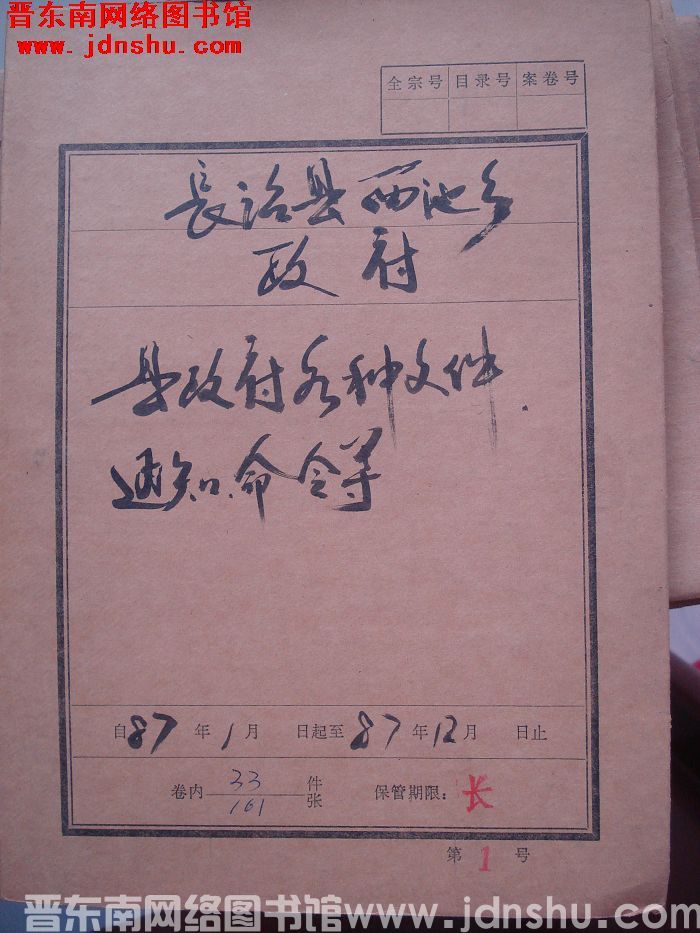 晋东南网络图书馆
www.jdnshu.com
全宗号 目录号 案卷号
長治县西池乡
政府
县政府各种文件.
通知.命令等
自87年1月 日起至87年12月 日止
卷内 33 件
161 张
保管期限：长
第1号
晋东南网络图书馆 www.jdnshu.com